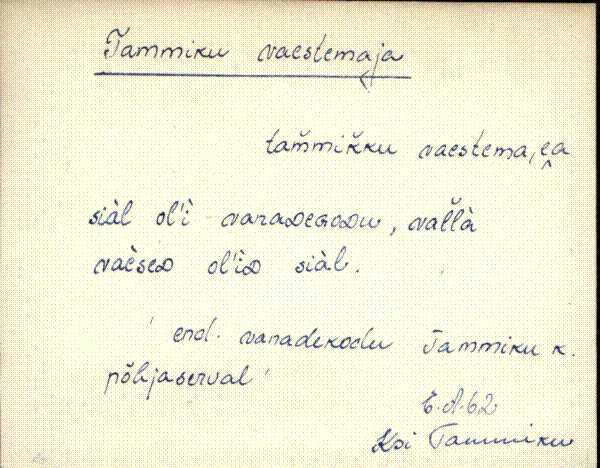 Tammiku vaestemaja
tam̆mik̆ku vaestema,e̯a
siàl ol'ì vanaᴅeɢoᴅu, val̆là
vaèseᴅ ol'ìᴅ siàl.
' end. vanadekodu Tammiku k.
põhjaserval '
E.A.62
Koi Tammiku